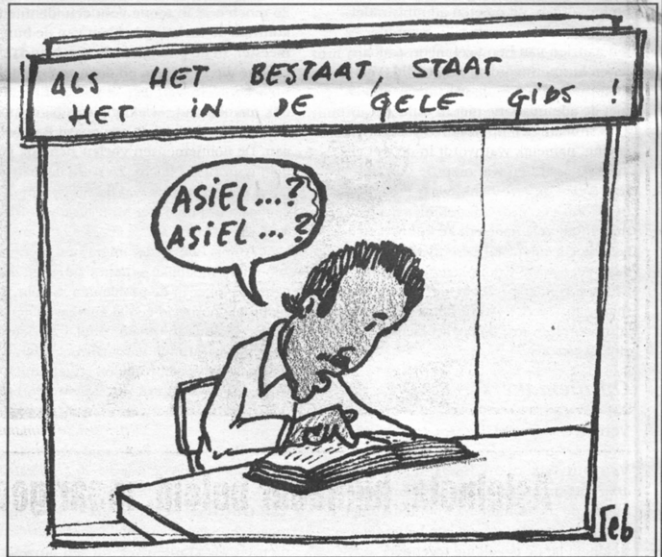 ALS HET BESTAAT, STAAT
HET IN DE GELE GIDS !
ASIEL...?
ASIEL...?